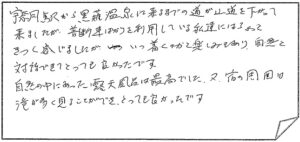 駅から黒薙温泉に来るまでの道が山道を下がって
来ましたが 普段車ばかりを利用している私達にはちょっと
きつく感じましたが いつ着くのかと楽しみもあり 自然と
対話できてとっても良かったです
自然の中にあった露天風呂は最高でした。又、宿の周囲も
滝が多く見ることができ、とっても良かったです